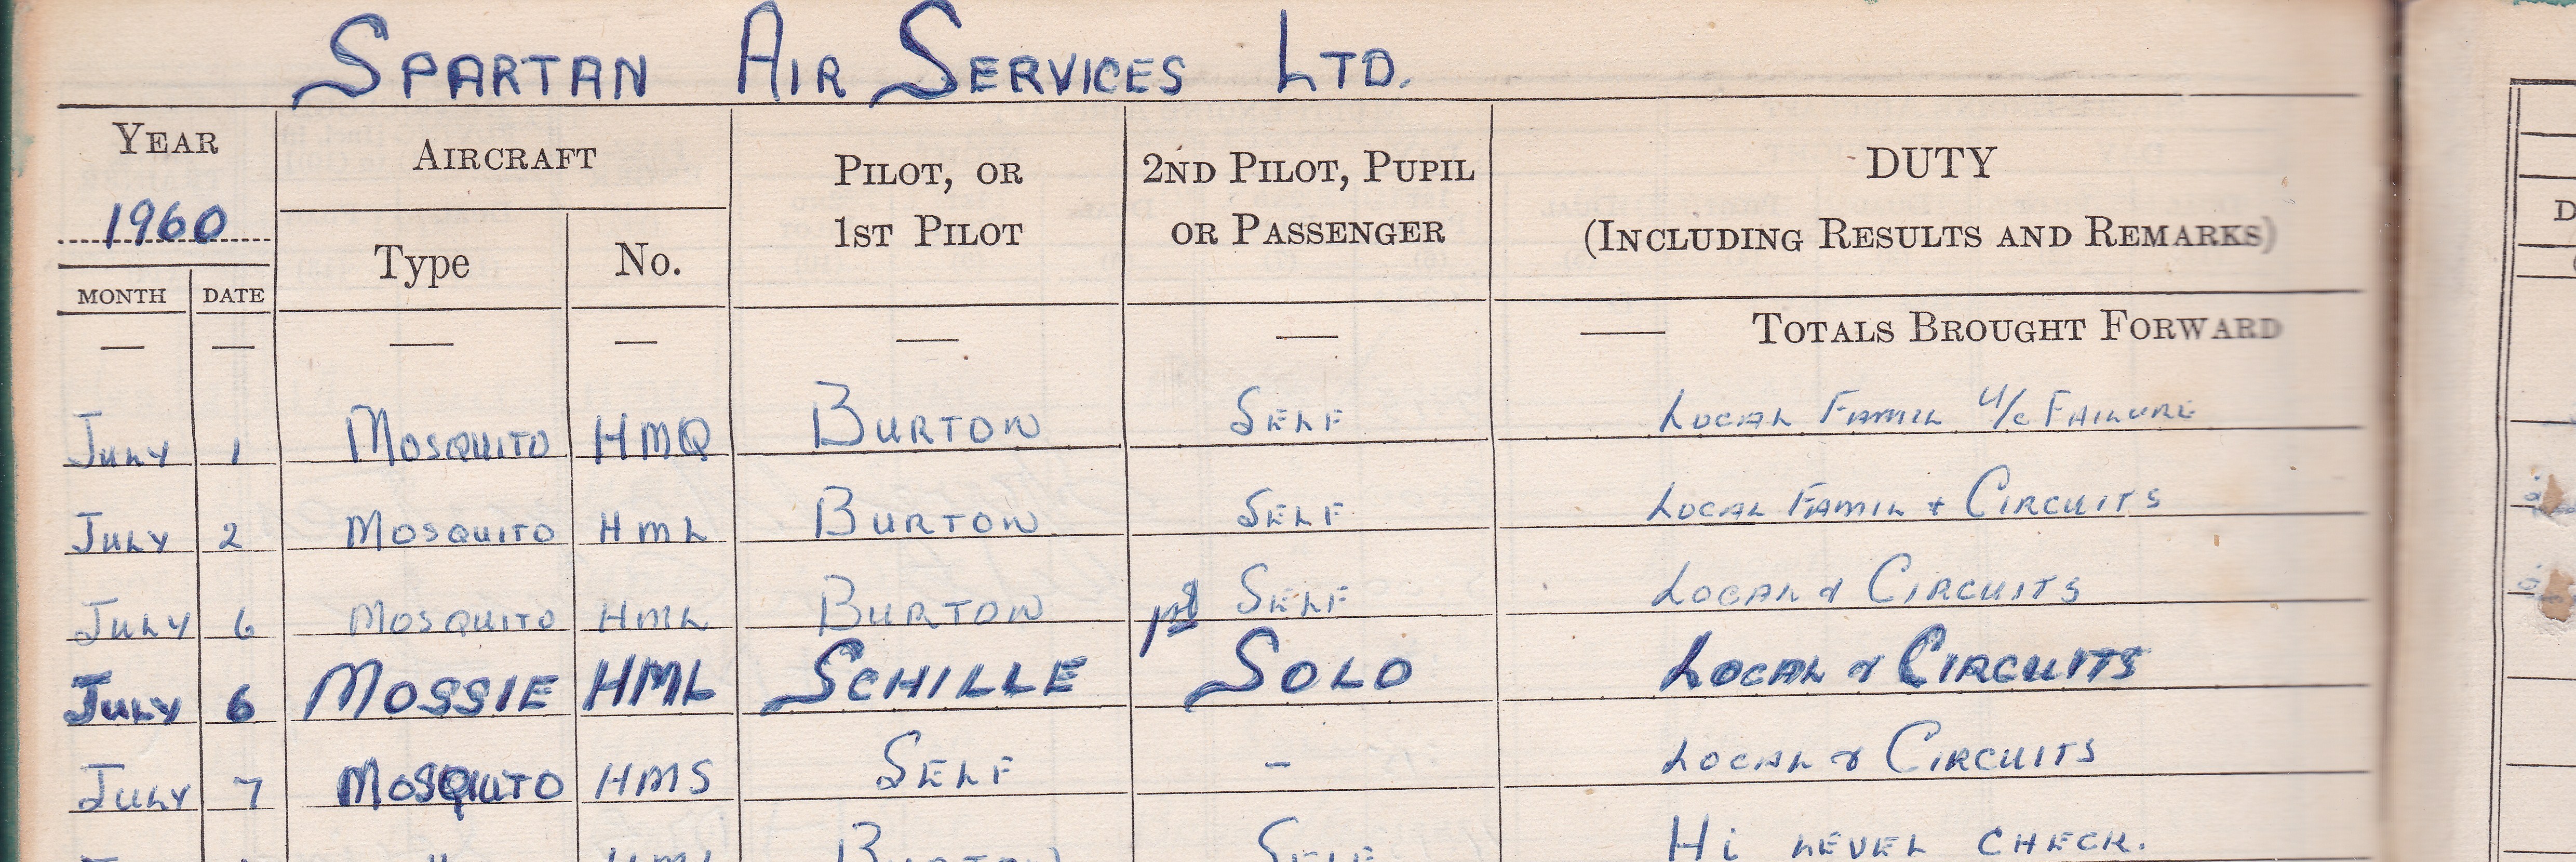 SPARTAN AIR SERVICES LTD.
YEAR AIRCRAFT PILOT, OR 2ND PILOT, PUPIL DUTY
1960 1ST PILOT OR PASSENGER (INCLUDING RESULTS AND REMARKS)
Type No.
MONTH DATE
— — — — — — —— TOTALS BROUGHT FORWARD
JULY 1 MOSQUITO HMQ BURTON SELF LOCAL FAMIL U/C FAILURE
JULY 2 MOSQUITO HML BURTON SELF LOCAL FAMIL + CIRCUITS
JULY 6 MOSQUITO HML BURTON SELF LOCAL & CIRCUITS
JULY 6 MOSSIE HML SCHILLE 1st SOLO LOCAL & CIRCUITS
JULY 7 MOSQUITO HMS SELF - LOCAL & CIRCUITS
BURTON SELF HI LEVEL CHECK.